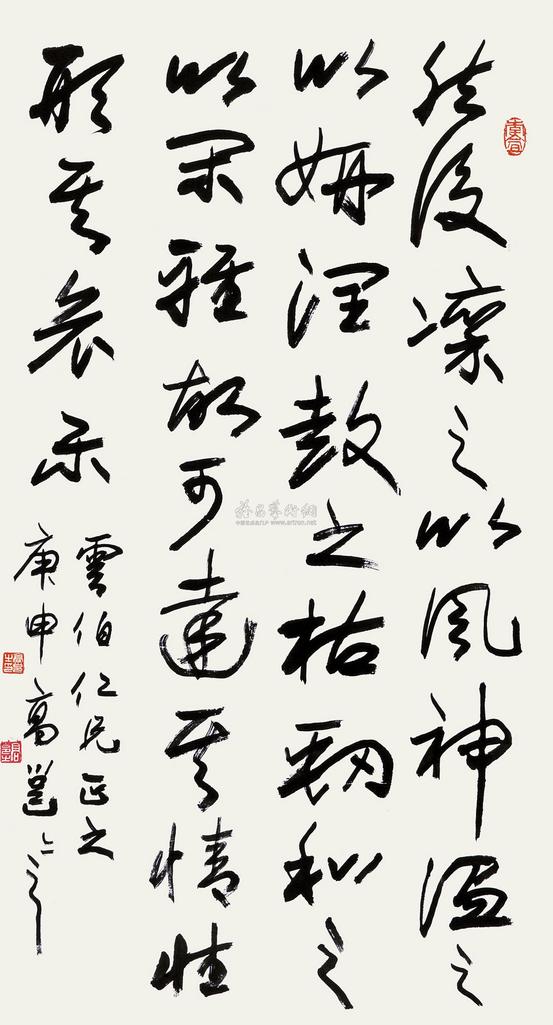 然後凜之以風神溫之
以妍潤鼓之枯勁和之
以閑雅故可達其情性
形其哀樂
雲伯仁兄正之
庚申高邕
雅昌藝術網
www.artron.net